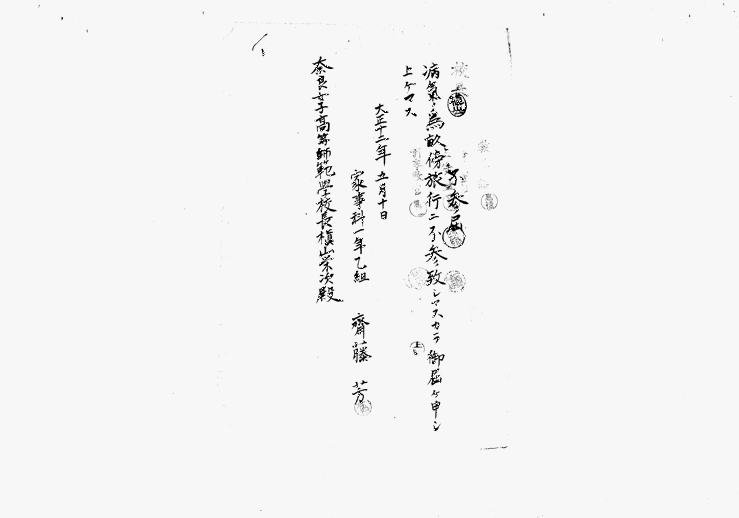 不参届
病氣ノ為畝傍旅行ニ不参致シマスカラ御屆ケ申シ
上ケマス
大正十二年五月十日
家事科一年乙組 齋藤芳
奈良女子高等師範學校長槇山栄次殿